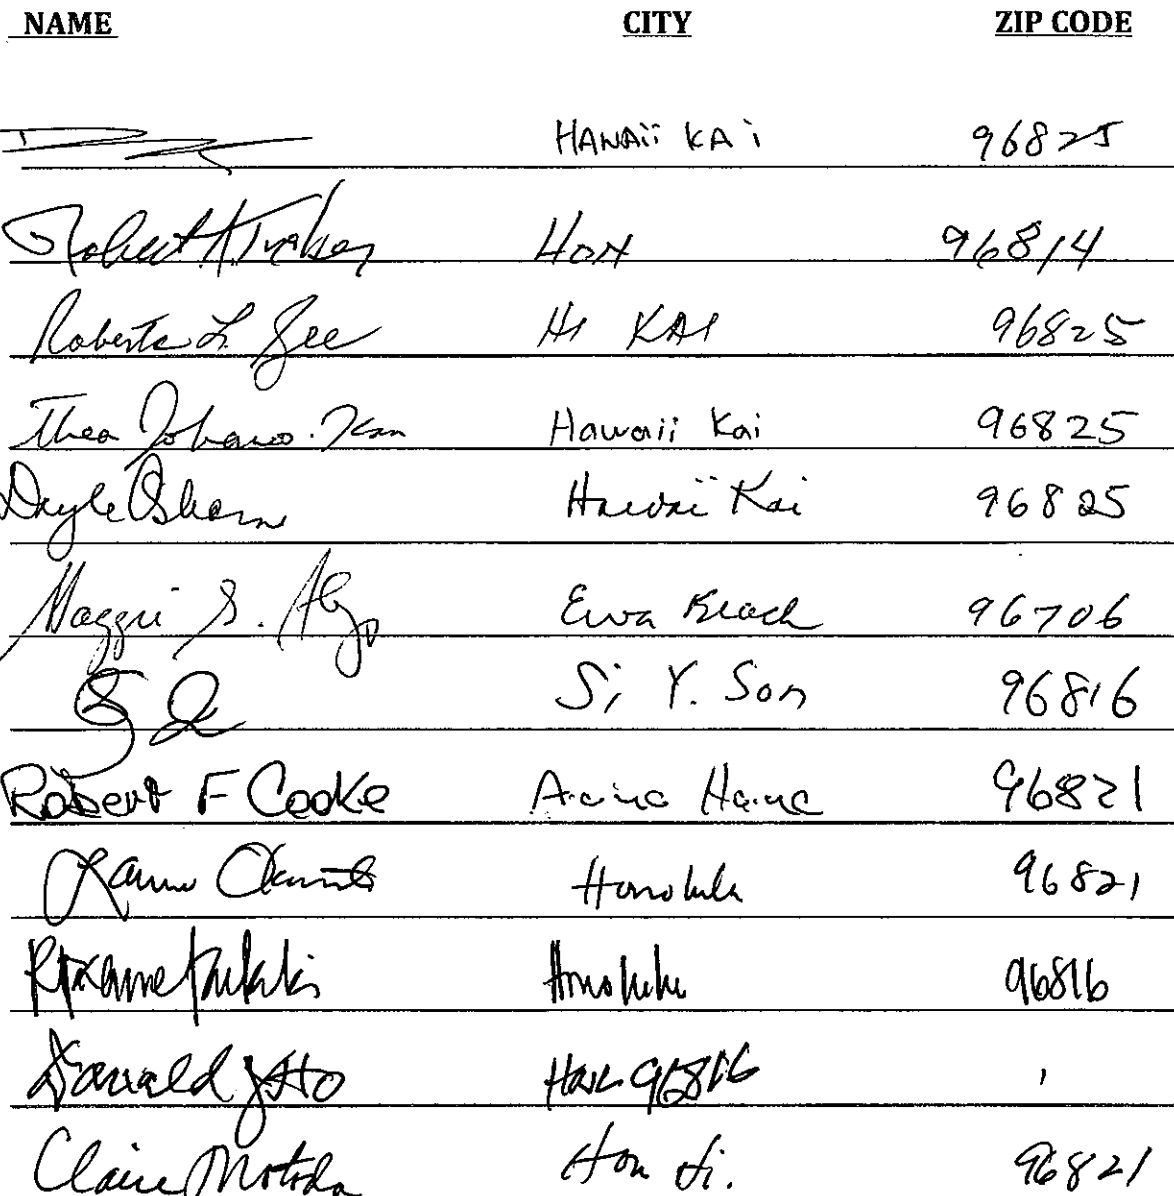 NAME CITY ZIP CODE
HAWAii KAi 96825
Robert HON 96814
Roberta L. Gee HI KAI 96825
Thea Hawaii Kai 96825
Dayle Osborn Hawaii Kai 96825
Maggie S. Ewa Beach 96706
Si Y. Son 96816
Robert F Cooke Aina Haina 96821
Honolulu 96821
Roxanne Honolulu 96816
Donald Ito 96816
Claire Motoda Hon Hi. 96821